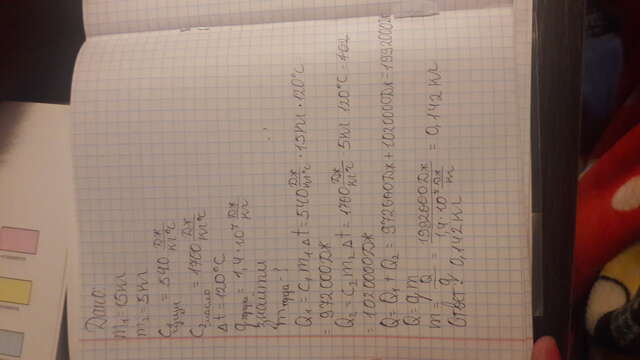 Дано:
m₁ = 15 кг
m₂ = 5 кг
C₁ = 540 Дж/кг°C
C₂ масло = 1700 Дж/кг°C
Δt = 120°C
q = 1,4 · 10⁷ Дж/кг
знайти
m - ?
Q₁ = C₁ m₁ Δt = 540 Дж/кг°C · 15 кг · 120°C
= 972000 Дж
Q₂ = C₂ m₂ Δt = 1700 Дж/кг°C · 5 кг 120°C = 102
= 1020000 Дж
Q = Q₁ + Q₂ = 972000 Дж + 1020000 Дж = 1992000 Дж
Q = q m
m = Q/q = 1992000 Дж / 1,4 · 10⁷ Дж/кг = 0,142 кг
Ответ: 0,142 кг